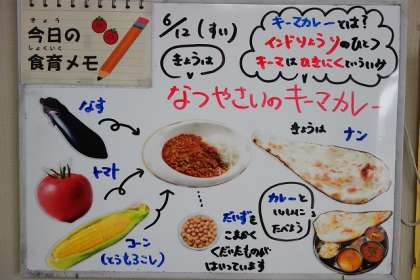 きょう
今日の
しょくいく
食育メモ
6/12(すい)
きょうは
キーマカレーとは?
インドりょうりのひとつ
キーマはひきにくといういみ
なつやさいのキーマカレー
なす
トマト
コーン
(とうもろこし)
だいずを
こまかく
くだいたものが
はいっています
きょうは
ナン
カレーと
いっしょに
たべよう